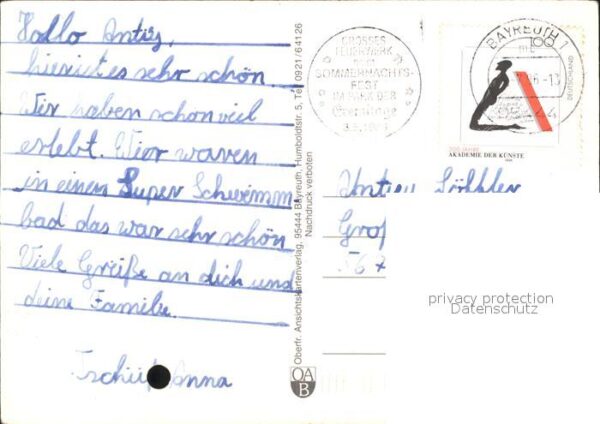 Hallo Antje,
hier ist es sehr schön
Wir haben schon viel
erlebt. Wir waren
in einem Super Schwimm
bad das war sehr schön
Viele Grüße an dich und
deine Familie
Tschüß Anna
Oberfr. Ansichtskartenverlag, 95444 Bayreuth, Humboldtstr. 5, Tel. 0921/64126
Nachdruck verboten
OA
B
GROSSES
FEUERWERK
SOMMERNACHTS-
FEST
IM PARK DER
Eremitage
BAYREUTH 1
95444
100
DEUTSCHLAND
300 JAHRE
AKADEMIE DER KÜNSTE
Groß
567
privacy protection
Datenschutz